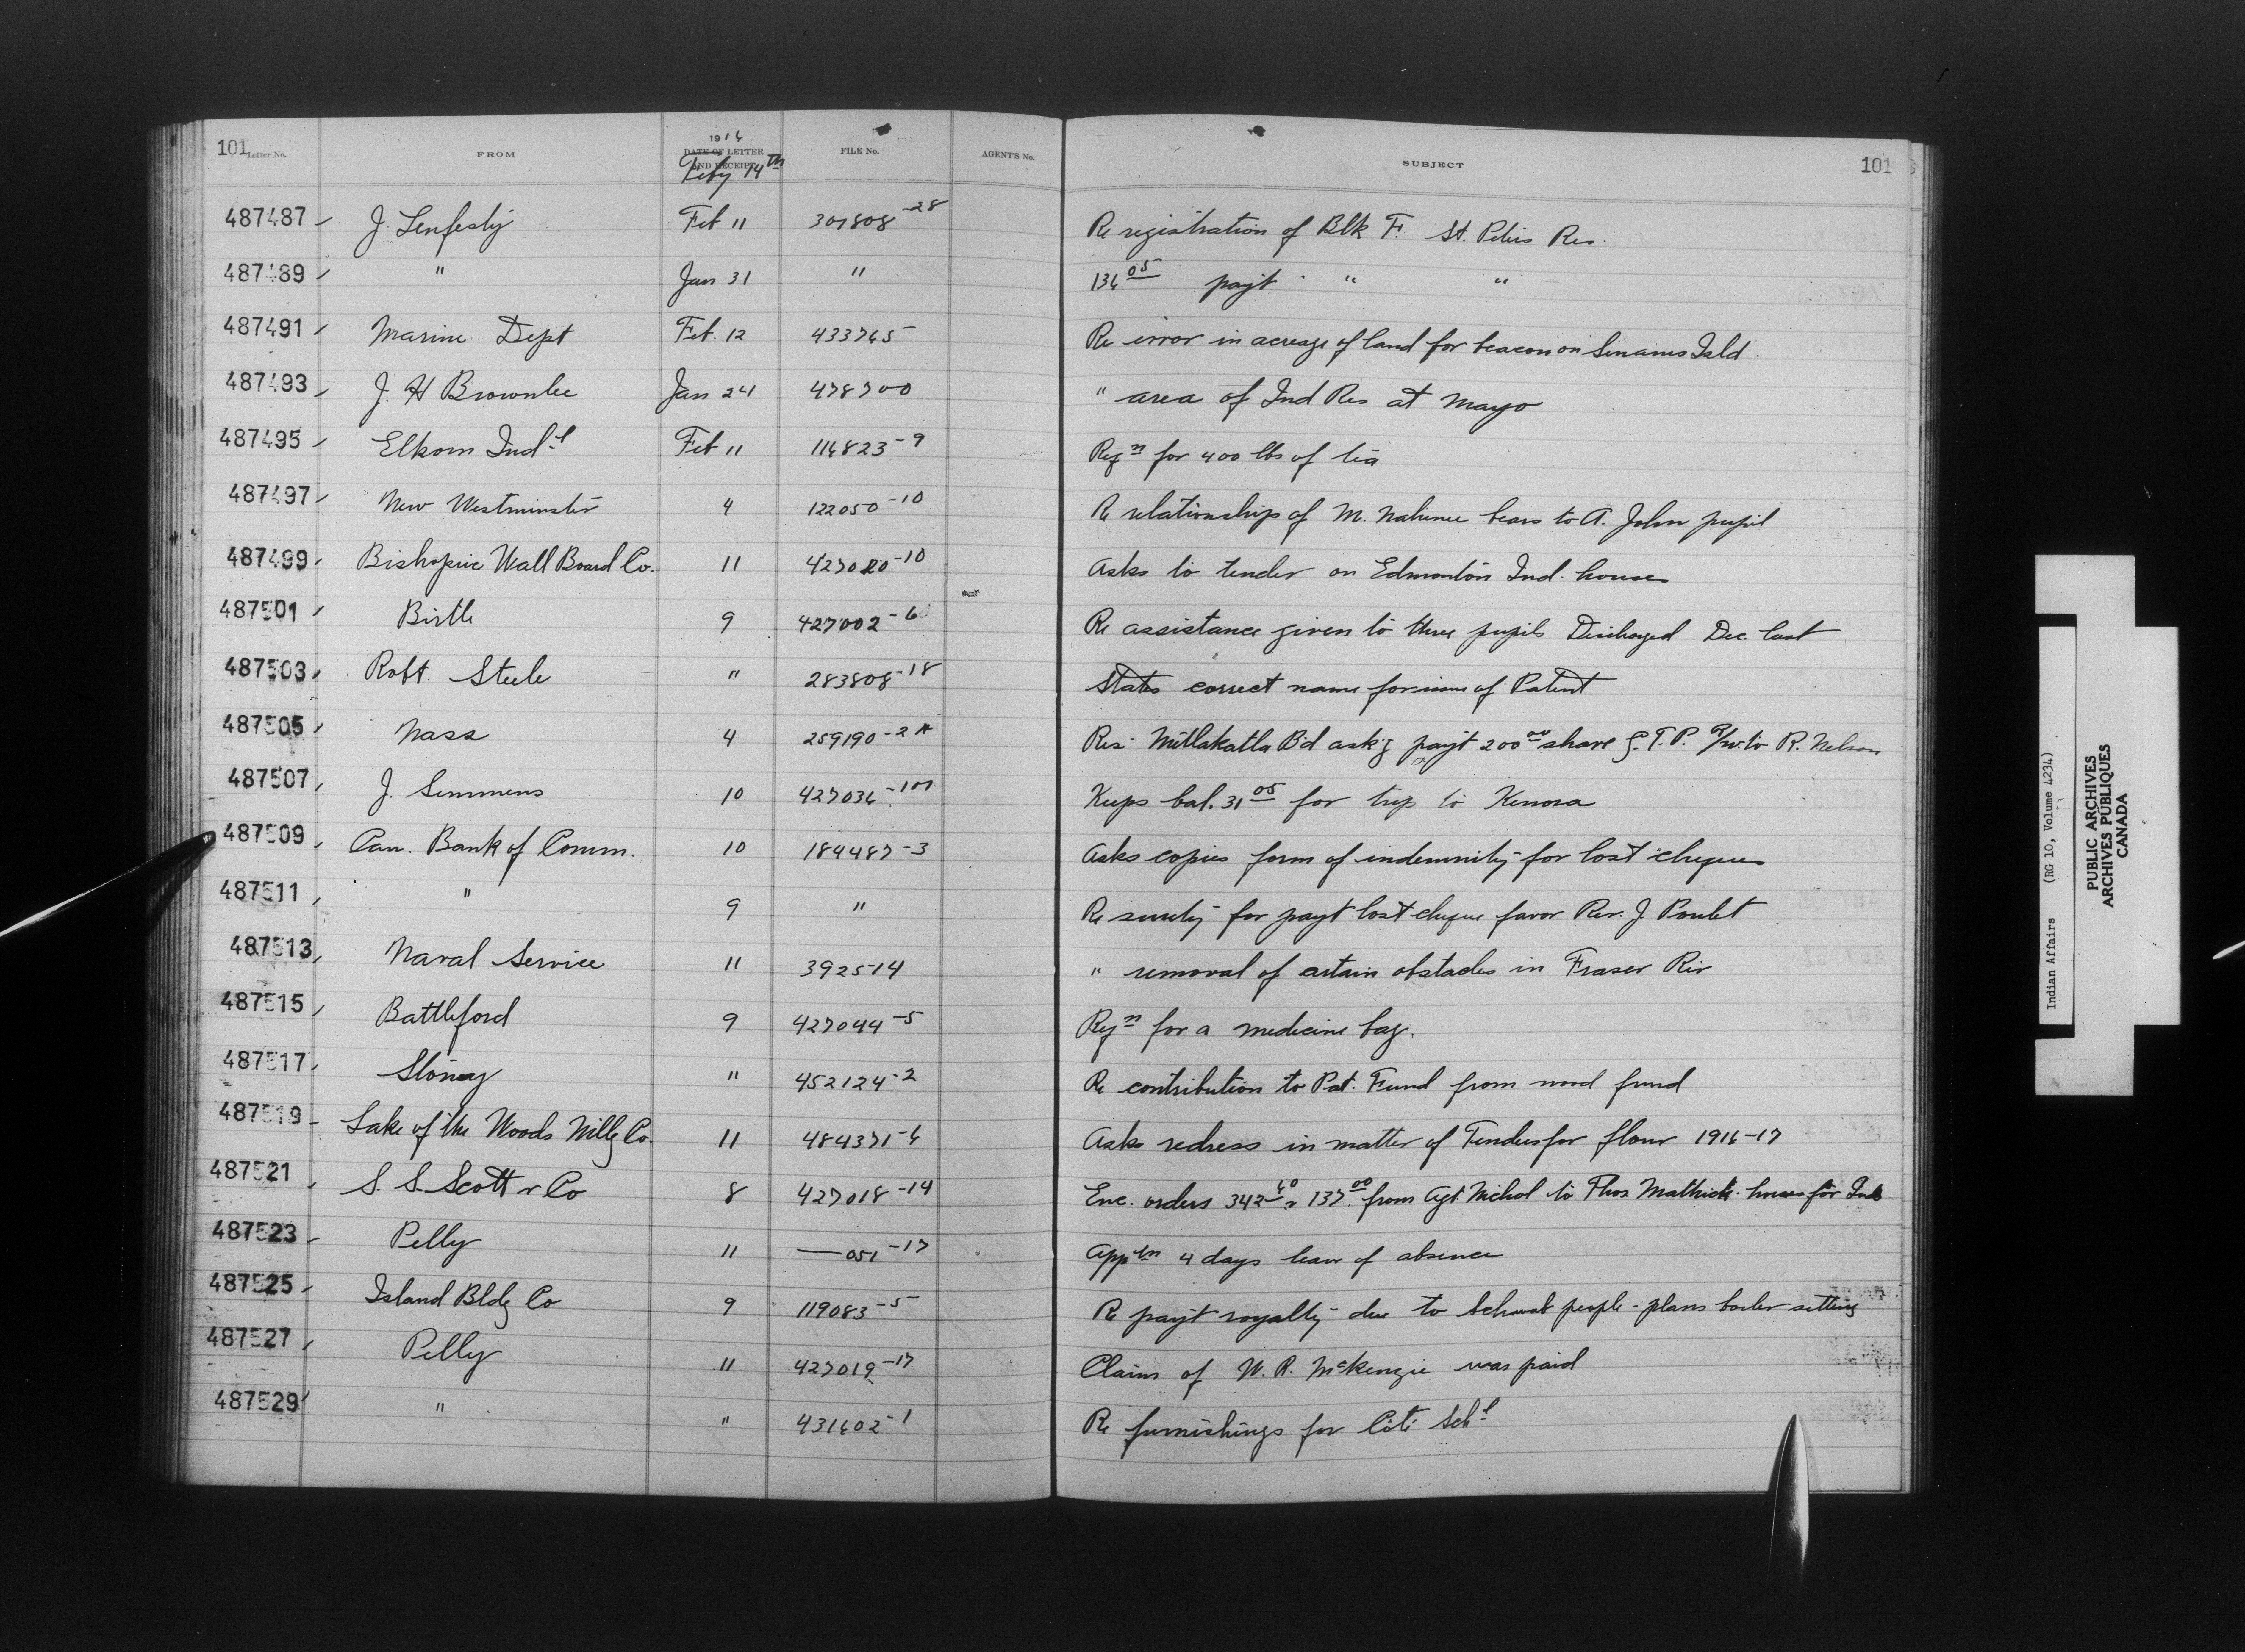 101 Letter No. FROM 1916 DATE OF LETTER AND RECEIPT Feby 14th FILE No. AGENT'S No. SUBJECT 101
487487 J. Lenfesty Feb 11 307808-28 Re registration of Blk F. St. Peters Res.
487489 " Jan 31 " 136 05 payt " "
487491 Marine Dept Feb. 12 433765 Re error in acreage of land for beacon on Senanus Isld.
487493 J. H Brownlee Jan 24 478700 " area of Ind Res at Mayo
487495 Elkorn Indl Feb 11 114823-9 Reqn for 400 lbs of tea
487497 New Westminster 4 122050-10 Re relationship of M. bears to A. John pupil
487499 Bishopric Wall Board Co. 11 427020-10 Asks to tender on Edmonton Ind. houses
487501 Birtle 9 427002-6 Re assistance given to three pupils Discharged Dec. last
487503 Robt. Steele " 283808-18 States correct name for issue of Patent
487505 Nass 4 259190-2A Res. Mitlakatla Bd ask'g payt 200 00 share G.T.P. R/w to R. Nelson
487507 J. Semmens 10 427036-10 Keeps bal. 31 05 for trip to Kenora
487509 Can. Bank of Comm. 10 184487-3 Asks copies form of indemnity for lost cheques
487511 " 9 " Re surety for payt lost cheque favor Rev. J. Poulet
487513 Naval Service 11 392514 " removal of certain obstacles in Fraser Riv
487515 Battleford 9 427044-5 Reqn for a medicine bag.
487517 Stoney " 452124-2 Re contribution to Pat. Fund from wood fund
487519 Lake of the Woods Millg Co. 11 484371-6 Asks redress in matter of Tenders for flour 1916-17
487521 S. S. Scott & Co 8 427018-14 Enc. orders 342 40 & 137 00 from Agt. Nichol to Thos horses for Inds
487523 Pelly 11 — 051-17 Appln 4 days leave of absence
487525 Island Bldg Co 9 119083-5 Re payt royalty due to Schwab people - plans boiler setting
487527 Pelly 11 427019-17 Claim of W. R. McKenzie was paid
487529 " " 431602-1 Re furnishings for Coté Schl
Indian Affairs (RG 10, Volume 4234)
PUBLIC ARCHIVES
ARCHIVES PUBLIQUES
CANADA